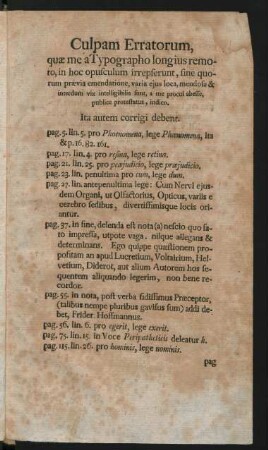 Culpam Erratorum,
quæ me a Typographo longius remo-
to, in hoc opusculum irrepserunt, sine quo-
rum prævia emendatione, varia ejus loca, mendosa &
interdum vix intelligibilia sunt, a me procul abesse,
publice protestatus, indico.
Ita autem corrigi debent.
pag. 5. lin. 5. pro Phœnomena, lege Phænomena, ita
& p. 16. 82. 161.
pag. 17. lin. 4. pro resina, lege retina.
pag. 21. lin. 25. pro præjudicio, lege præjudicia.
pag. 23. lin. penultima pro cum, lege dum.
pag. 27. lin. antepenultima lege: Cum Nervi ejus-
dem Organi, ut Olfactorius, Opticus, variis e
cerebro sedibus, diversissimisque locis ori-
antur.
pag. 37. in fine, delenda est nota (a) nescio quo fa-
to impressa, utpote vaga, nilque allegans &
determinans. Ego quippe quæstionem pro-
positam an apud Lucretium, Voltairium, Hel-
vetium, Diderot, aut alium Autorem hos se-
quentem aliquando legerim, non bene re-
cordor.
pag. 55. in nota, post verba fidissimus Præceptor,
(talibus nempe pluribus gavisus sum) addi de-
bet, Frider. Hoffmannus.
pag. 56. lin. 6. pro egerit, lege exerit.
pag. 75. lin. 15. in Voce Peripathetitis deleatur h.
pag. 115. lin. 26. pro hominis, lege nominis.
pag